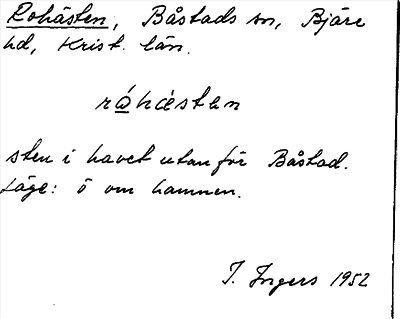 Rohästen, Båstads sn, Bjäre
hd, Krist. län.
råhästen
sten i havet utanför Båstad.
Läge: ö om hamnen.
I. Ingers 1952